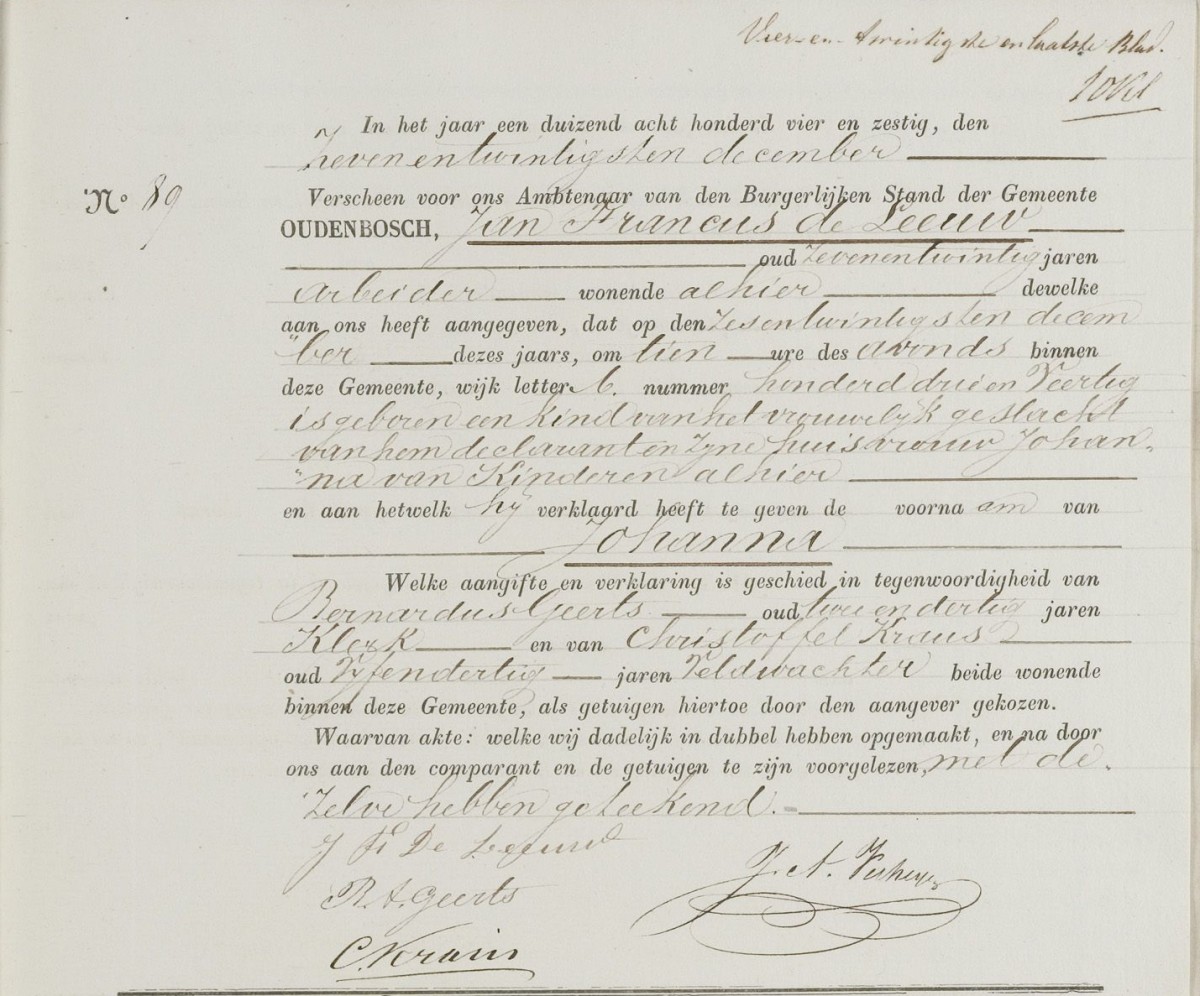 Vier-en-twintigste en laatste Blad.
In het jaar een duizend acht honderd vier en zestig, den
zevenentwintigsten december
No 89
Verscheen voor ons Ambtenaar van den Burgerlijken Stand der Gemeente
OUDENBOSCH, Jan Francus de Leeuw
oud zevenentwintig jaren
arbeider wonende alhier dewelke
aan ons heeft aangegeven, dat op den zesentwintigsten decem
"ber dezes jaars, om tien ure des avonds binnen
deze Gemeente, wijk letter b. nummer honderd drie en Veertig
is geboren een kind van het vrouwelijk geslacht
van hem declarant en zyne huisvrouw Johan-
"na van Kinderen alhier
en aan hetwelk hij verklaard heeft te geven de voorna am van
Johanna
Welke aangifte en verklaring is geschied in tegenwoordigheid van
Bernardus Geerts oud twee en dertig jaren
Klerk en van Christoffel Kraus
oud Vyfendertig jaren Veldwachter beide wonende
binnen deze Gemeente, als getuigen hiertoe door den aangever gekozen.
Waarvan akte: welke wij dadelijk in dubbel hebben opgemaakt, en na door
ons aan den comparant en de getuigen te zijn voorgelezen, met de.
zelve hebben geteekend.
J F De Leeuw
B.A. Geerts
C. Kraus